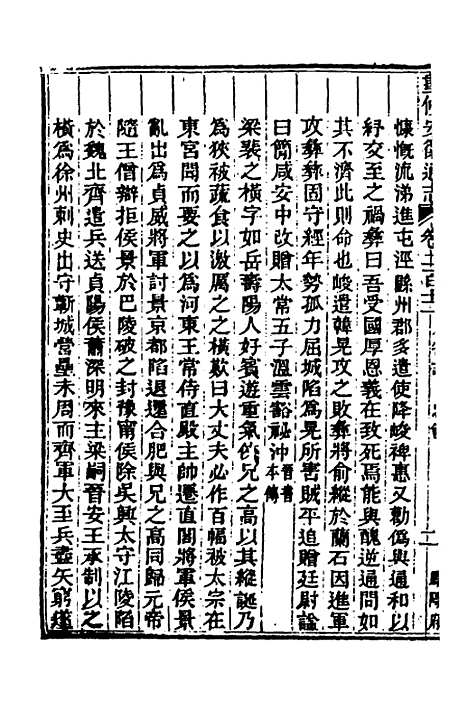 重修安徽通志 卷二百十二 二
慷慨流涕進屯涇縣州郡多遣使降峻裨惠又勸僞與通和以
紓交至之禍彝曰吾受國厚恩義在致死焉能與醜逆通問如
其不濟此則命也峻遣韓晃攻之敗彝將俞縱於蘭石因進軍
攻彝彝固守經年勢孤力屈城陷爲晃所害賊平追贈廷尉諡
曰簡咸安中改贈太常五子溫雲豁祕沖晉書本傳
梁裴之橫字如岳壽陽人好賓遊重氣俠兄之高以其縱誕乃
爲狹被蔬食以激厲之之橫歎曰大丈夫必作百幅被太宗在
東宮聞而要之以爲河東王常侍直殿主帥遷直閣將軍侯景
亂出爲貞威將軍討景京都陷退還合肥與兄之高同歸元帝
隨王僧辯拒侯景於巴陵破之封豫甯侯除吳興太守江陵陷
於魏北齊遣兵送貞陽侯蕭深明來主梁嗣晉安王承制以之
橫爲徐州刺史出守蘄城營壘未周而齊軍大至兵盡矢窮遂